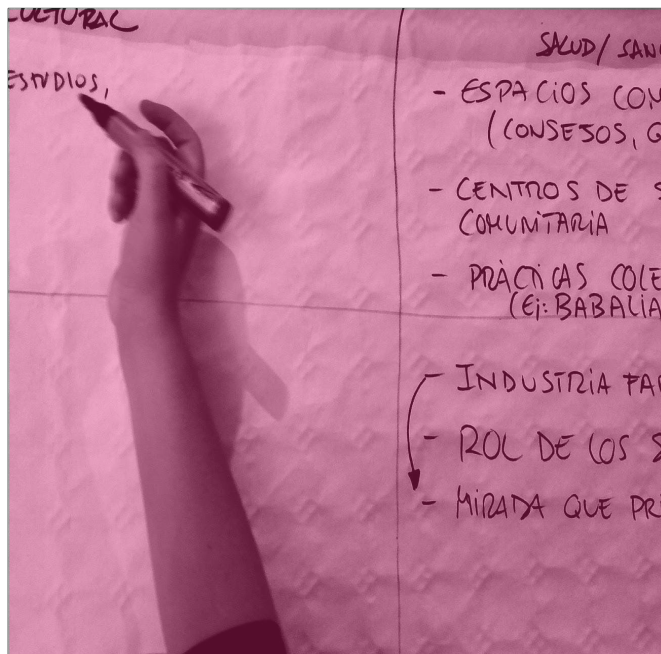 CULTURAL
ESTUDIOS,
SALUD/ SAN
- ESPACIOS COM
(CONSEJOS, Q
- CENTROS DE S
COMUNITARIA
- PRÀCTICAS COLE
(Ej: BABALIA
- INDUSTRIA FAR
- ROL DE LOS S
- MIRADA QUE PR